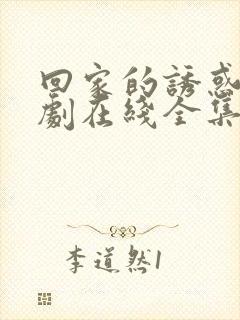 回家的誘惑
劇在綫全集
李道然1